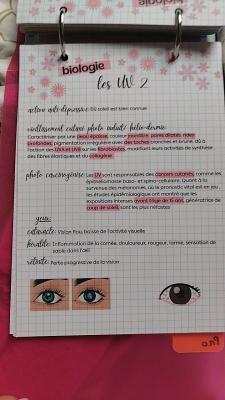 biologie
les UV 2
action anti-dépressive: DU soleil est bien connue
vieillissement cutané photo induit: hélio-dermie
Caractérisée par une peau épaisse, couleur jaunâtre, pores dilatés, rides
profondes, pigmentation irrégulière avec des taches blanches et brune, dû à
l'action des UVA et UVB sur les fibroblastes, modifiant leurs activités de synthèse
des fibres élastiques et du collagène.
photo cancérogénèse: Les UV sont responsables des cancers cutanés, comme les
épithéliomas baso- et spino-cellulaire. Quant à la
survenue des mélanomes, où le pronostic vital est en jeu,
les études épidémiologique ont montré que les
expositions intenses avant l'âge de 15 ans, génératrice de
coup de soleil, sont les plus néfastes
yeux:
cataracte: Vision flou, baisse de l'activité visuelle
kératite: Inflammation de la cornée, douloureux, rougeur, larme, sensation de
sable dans l'œil
rétinite: Perte progressive de la vision
Pro